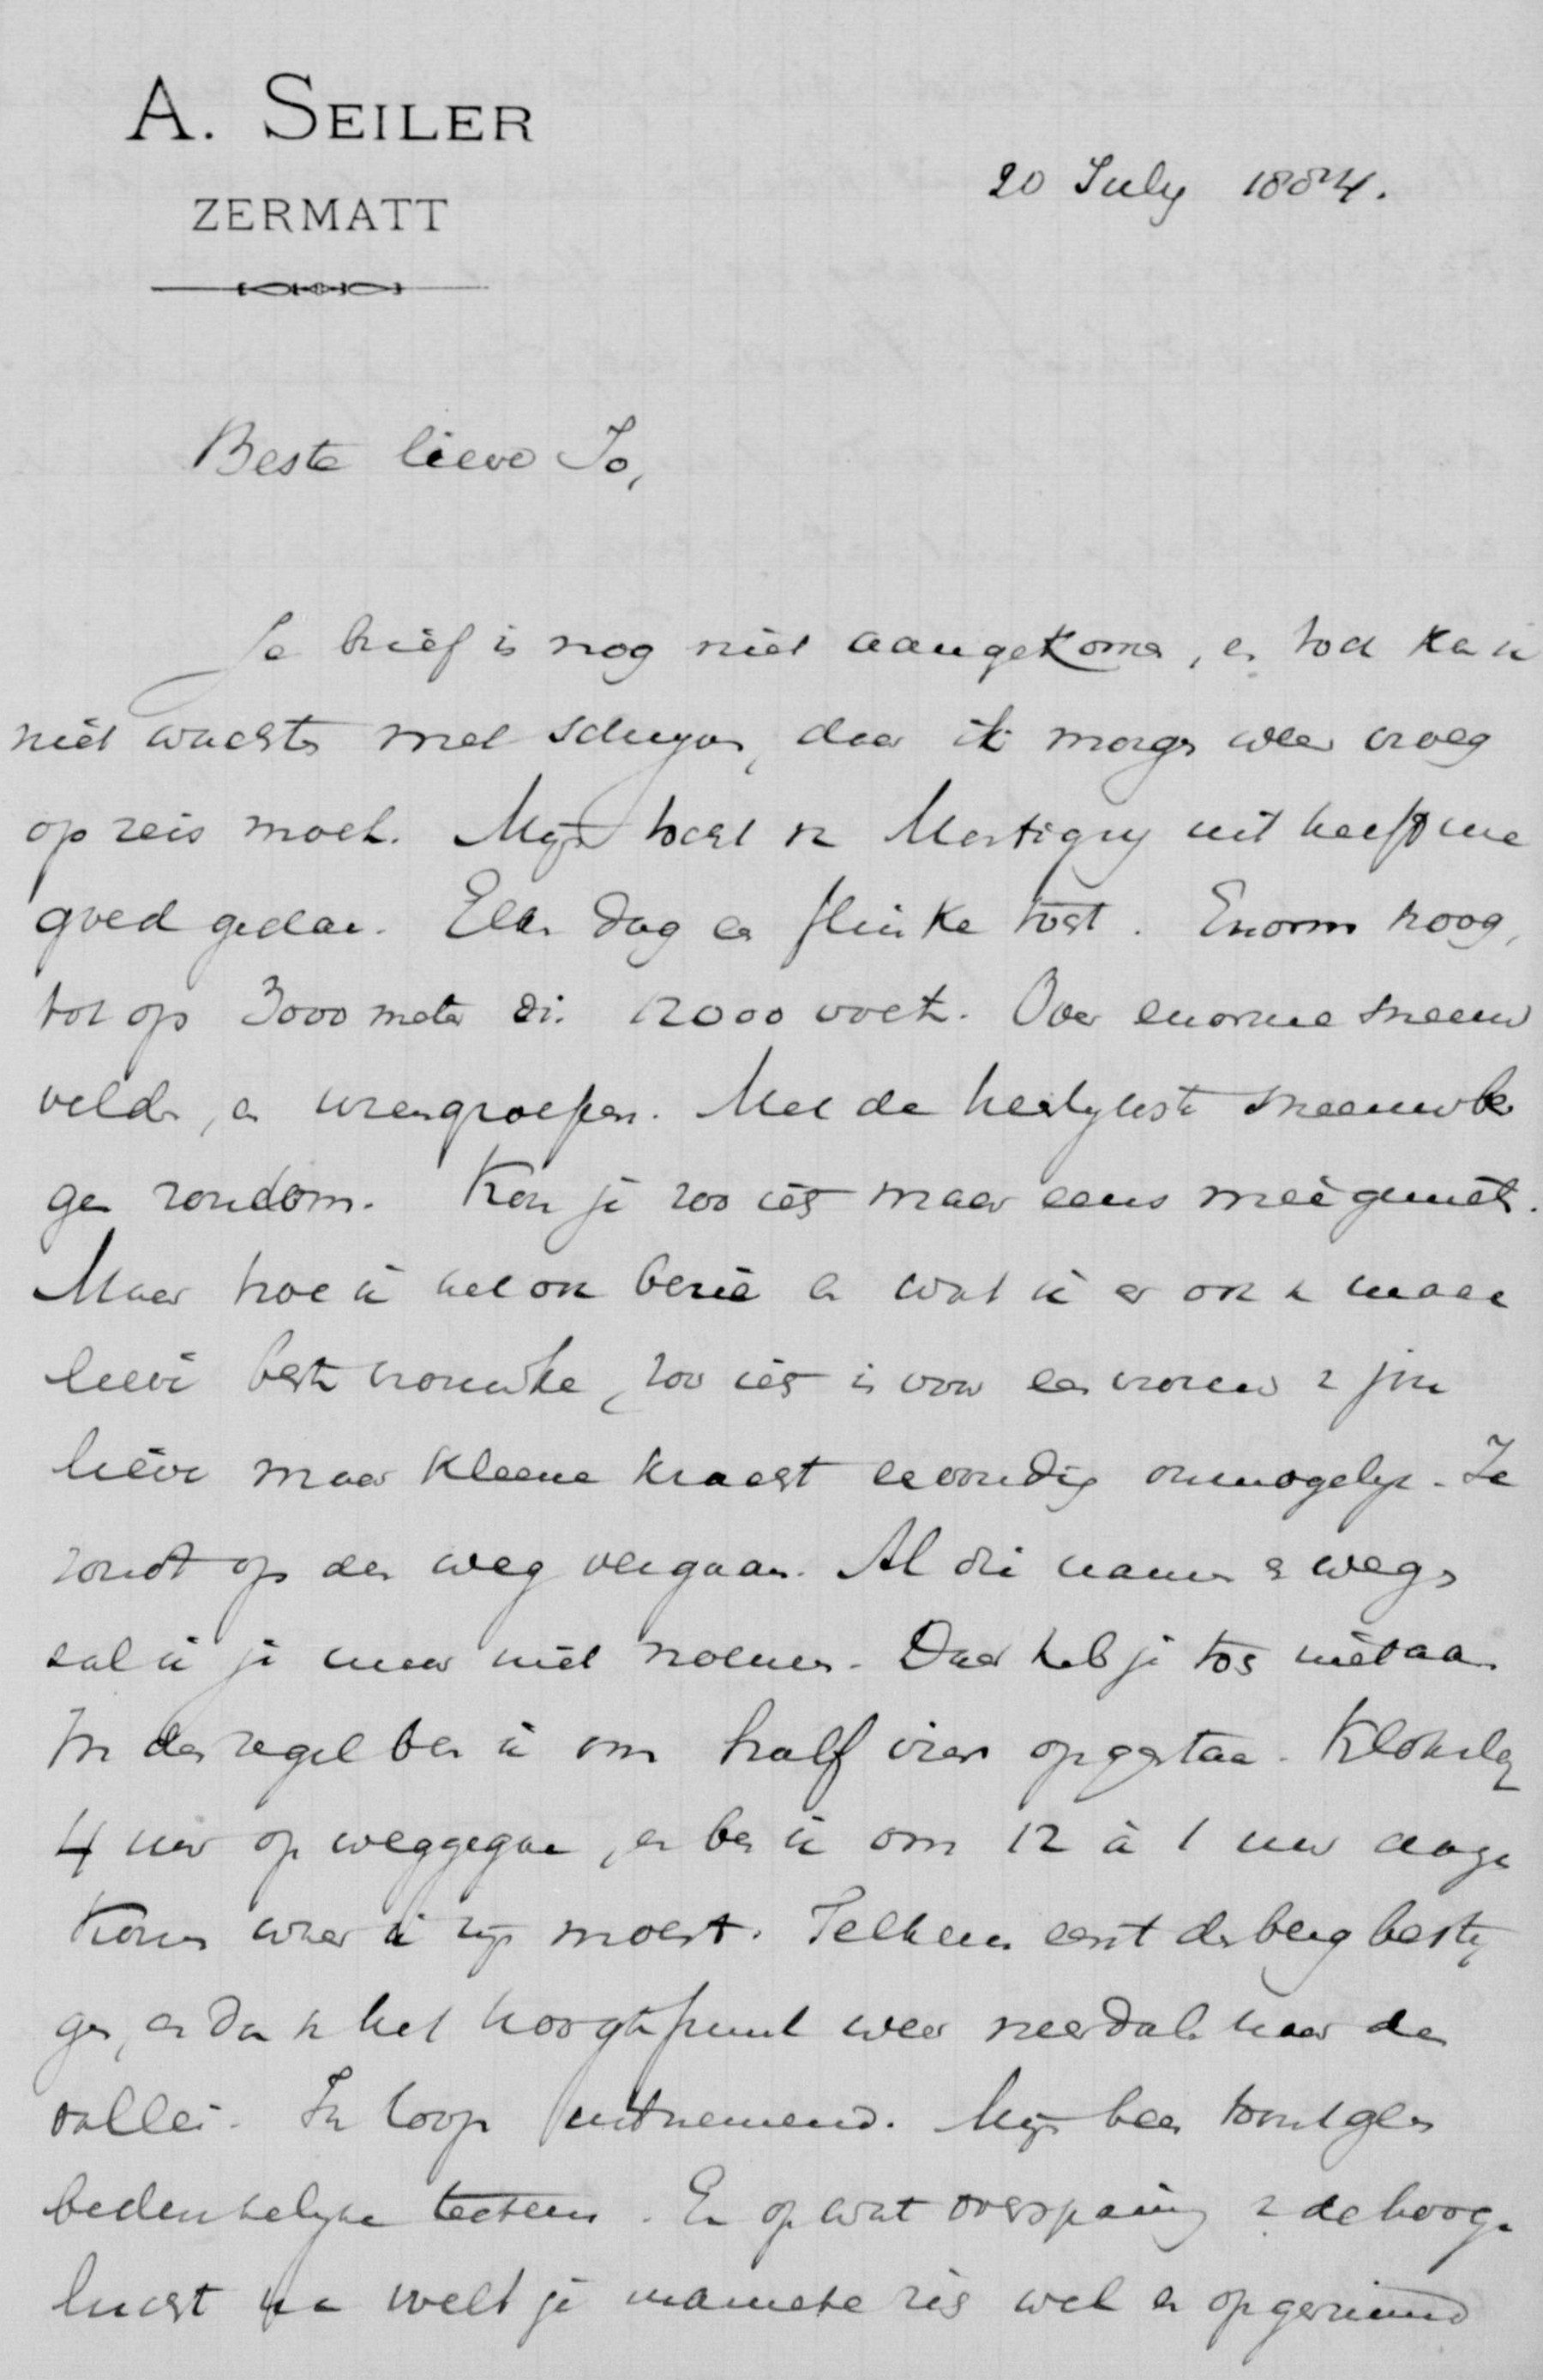 A. SEILER
ZERMATT
20 July 1884.
Beste lieve Jo,
Je brief is nog niet aangekomen, en toch kan ik
niet wachten met schrijven, daar ik morgen weer vroeg
op reis moet. Mijn tocht v Martigny uit heeft me
goed gedaan. Elken dag een flinke tocht. Enorm hoog,
tot op 3000 meter di. 12000 voet. Over enorme sneeuw
velden, en urengroepen. Met de heerlykste sneeuwber
gen rondom. Kon je zoo iets maar eens meê genieten.
Maar hoe ik het ook bezie en wat ik er ook v maak
lieve beste vrouwke, zoo iets is voor een vrouw v jou
lieve maar kleene kracht eenvoudig onmogelyk. Je
zoudt op den weg vergaan. Al die namen en wegen
zal ik je maar niet noemen. Daar heb je toch niet aan
In den regel ben ik om half vier opgestaan. Klokslag
4 uur op weggegaan, en ben ik om 12 à 1 uur aange
komen waar ik zijn moest. Telkens eerst den berg besty
gen, en dan v het hoogtepunt weer neerdalen naar de
vallei. Ik loop uitnemend. Mijn been toont geen
bedenkelyke teekens. En op wat overspanning v de hooge
lucht na voelt je manneke zich wel en opgeruimd